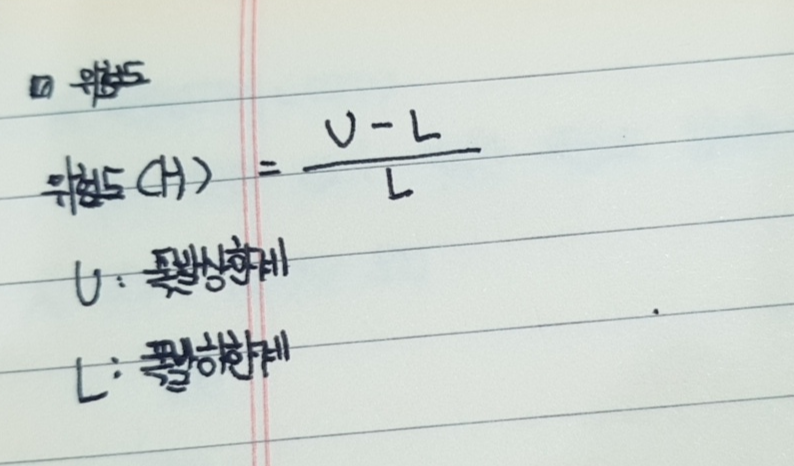 ▣ 위험도
위험도 (H) = U - L / L
U : 폭발상한계
L : 폭발하한계